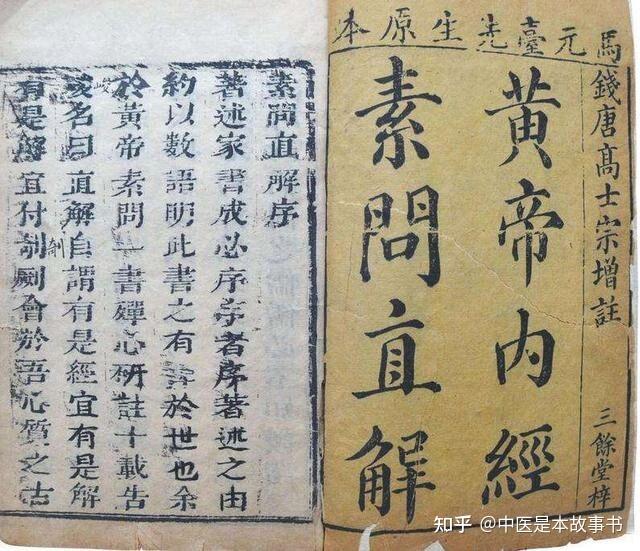 馬元臺先生原本
錢唐高士宗增註
三餘堂梓
黄帝内經
素問直解
素問直解序
著述家書成必序序者序著述之由
約以數語明此書之有裨於世也余
於黃帝素問一書殫心研註十載告
成名曰直解自謂有是經宜有是解
有是解宜付剞劂會於吾心質之古
知乎 @中医是本故事书